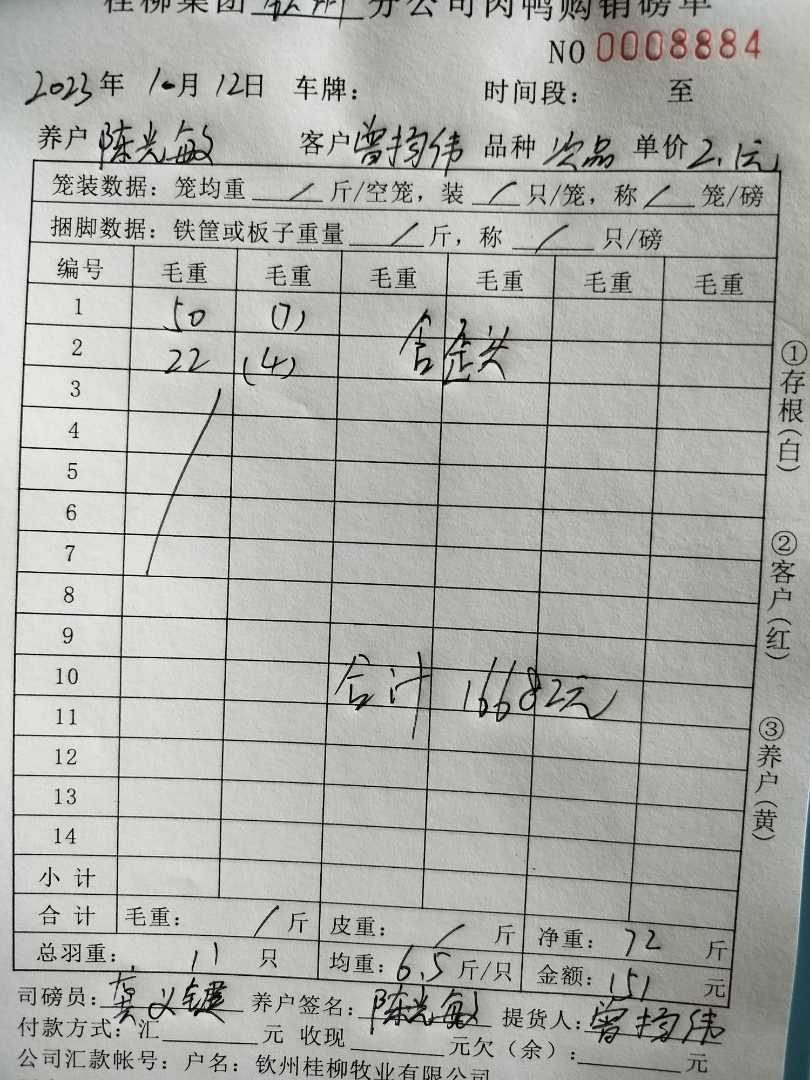 桂柳集团 钦州 分公司肉鸭购销磅单
NO 0008884
2023年 10月 12日 车牌： 时间段： 至
养户 陈光敏 客户 曾扬伟 品种 次品 单价 2.1元
笼装数据：笼均重 / 斤/空笼，装 / 只/笼，称 / 笼/磅
捆脚数据：铁筐或板子重量 / 斤，称 / 只/磅
编号 毛重 毛重 毛重 毛重 毛重 毛重
1 50 (7)
2 22 (4) 含歪头
3
4
5
6
7
8
9
10 合计 16682元
11
12
13
14
小计
合计 毛重： / 斤 皮重： / 斤 净重： 72 斤
总羽重： 11 只 均重：6.5斤/只 金额：151 元
司磅员： 义键 养户签名：陈光敏 提货人：曾扬伟
付款方式：汇 元 收现 元欠（余）： 元
公司汇款帐号：户名：钦州桂柳牧业有限公司
①存根(白)
②客户(红)
③养户(黄)